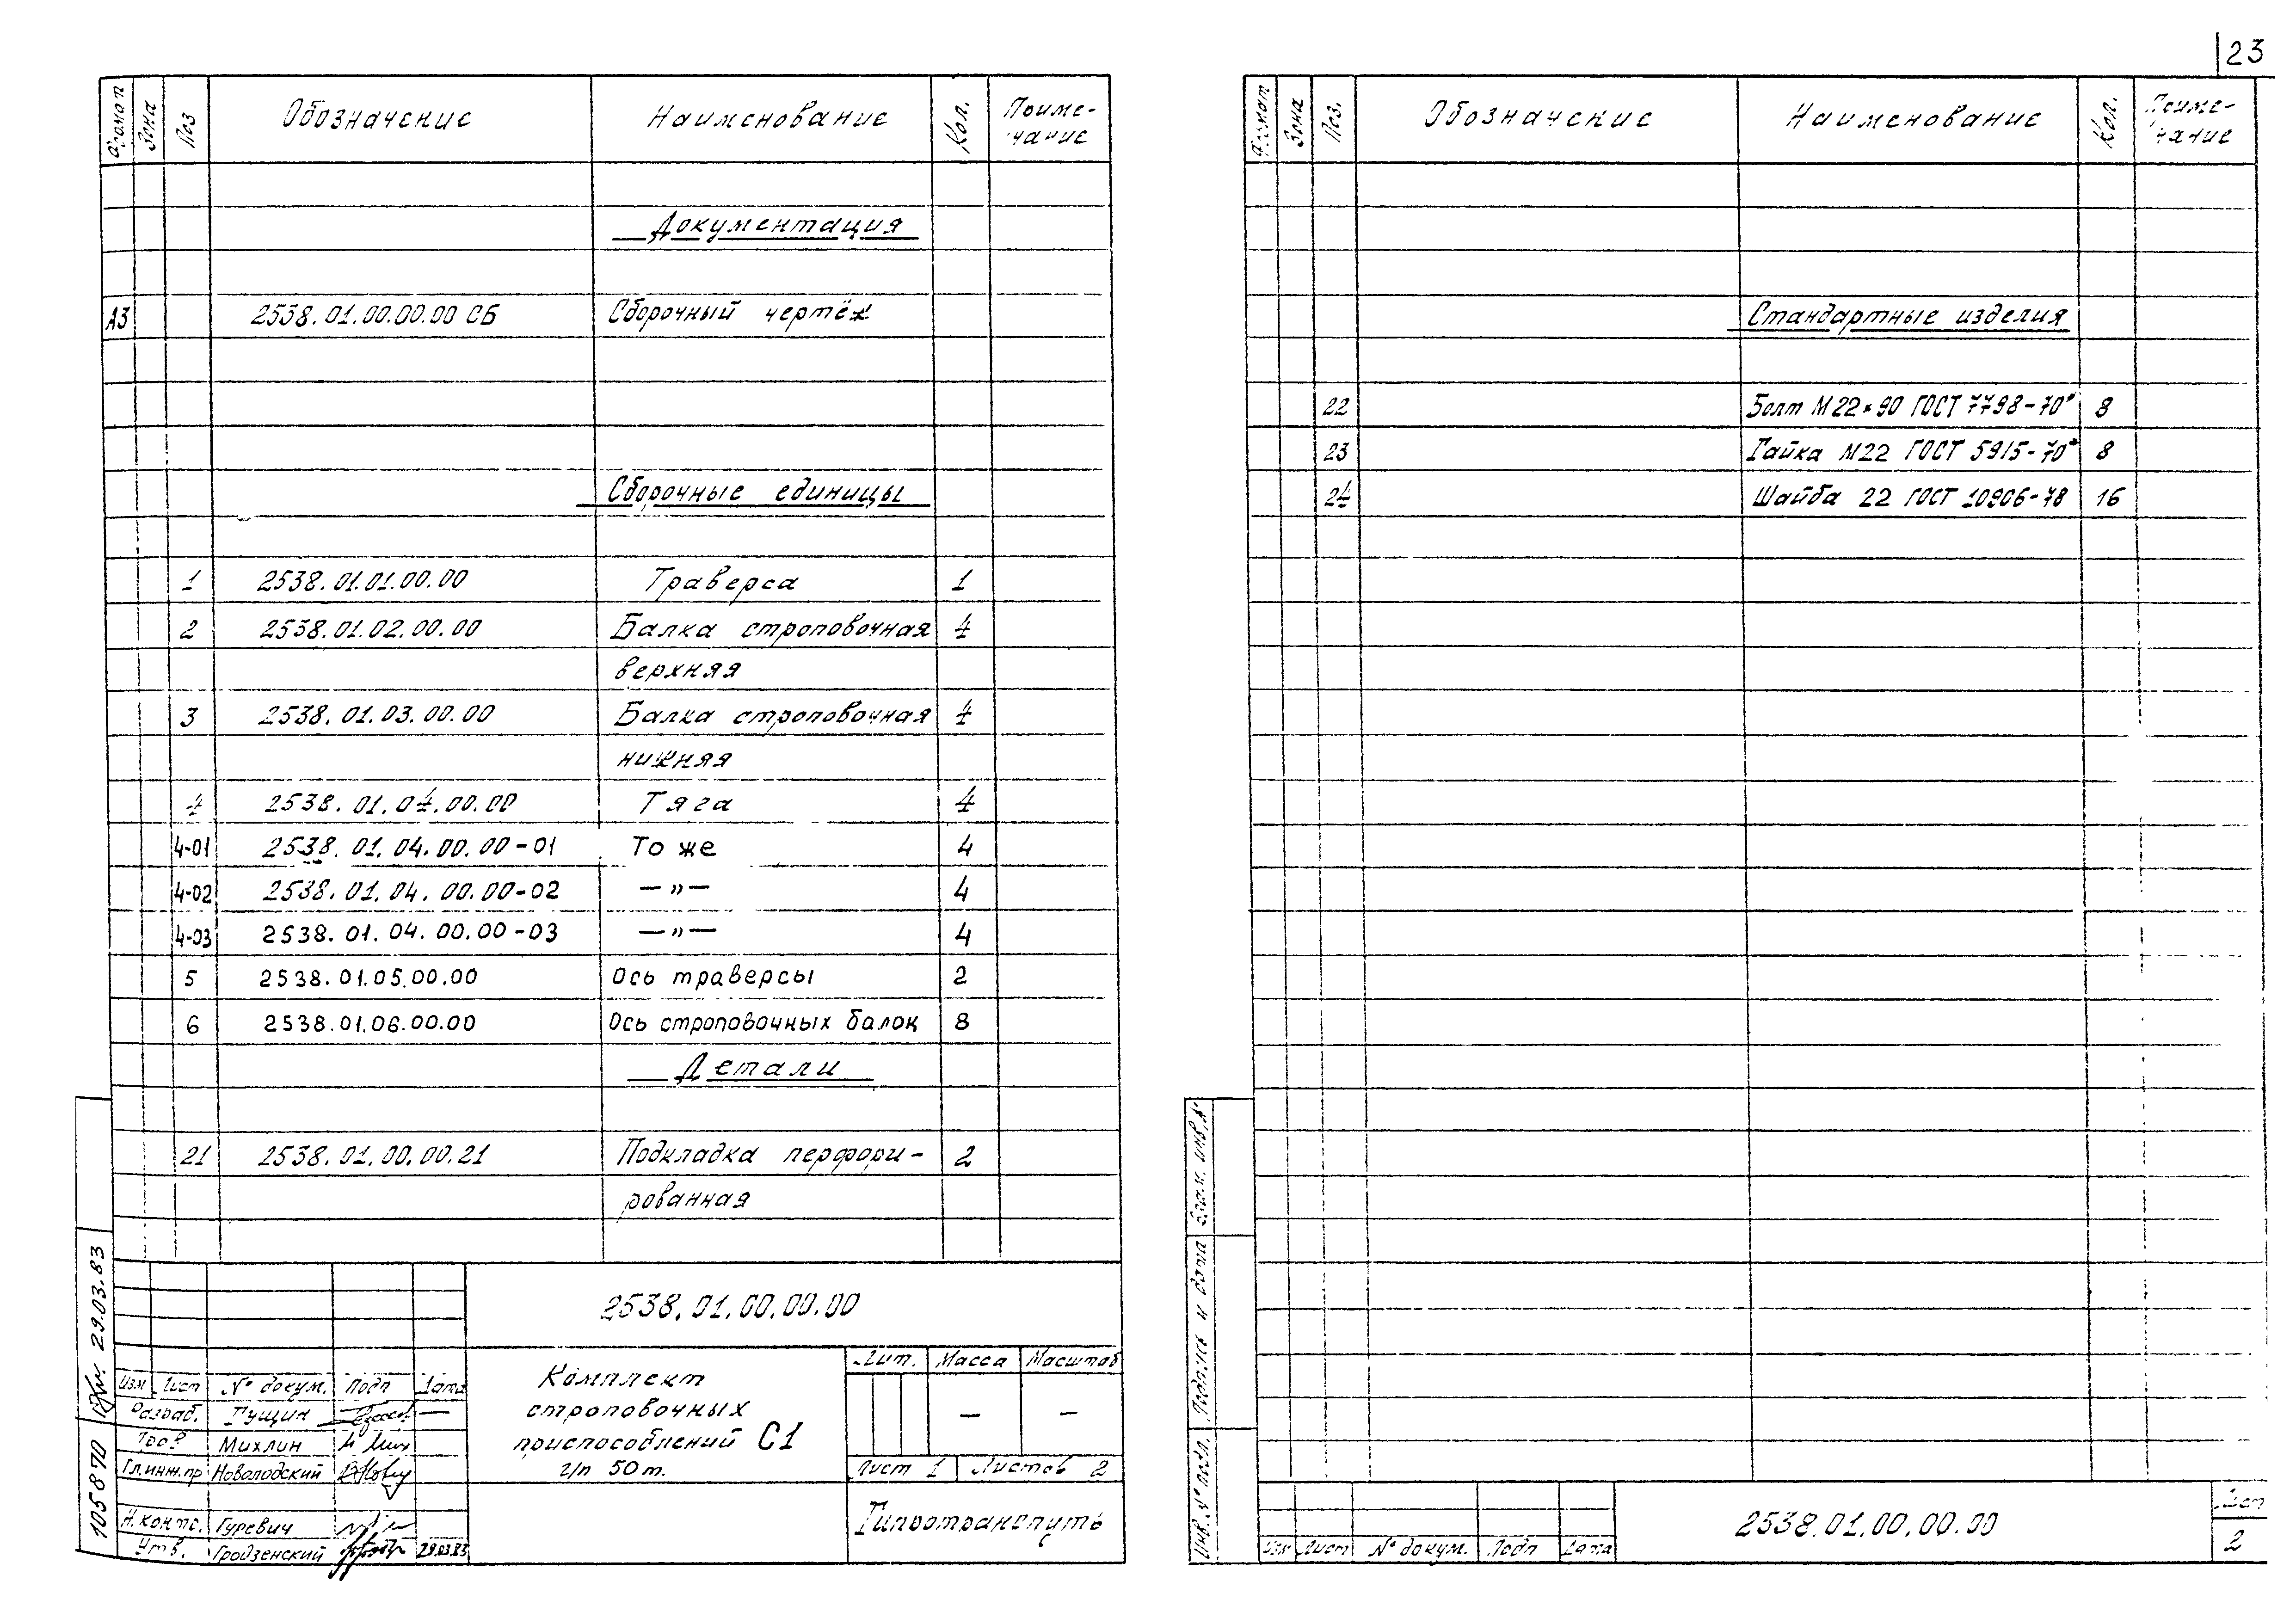 23
Формат Зона Поз Обозначение Наименование Кол. Приме-
чание
Документация
А3 2538.01.00.00.00 СБ Сборочный чертёж
Сборочные единицы
1 2538.01.01.00.00 Траверса 1
2 2538.01.02.00.00 Балка строповочная 4
верхняя
3 2538.01.03.00.00 Балка строповочная 4
нижняя
4 2538.01.04.00.00 Тяга 4
4-01 2538.01.04.00.00-01 То же 4
4-02 2538.01.04.00.00-02 —"— 4
4-03 2538.01.04.00.00-03 —"— 4
5 2538.01.05.00.00 Ось траверсы 2
6 2538.01.06.00.00 Ось строповочных балок 8
Детали
21 2538.01.00.00.21 Подкладка перфори- 2
рованная
2538.01.00.00.00
Изм Лист № докум. Подп Дата
Разраб. Пущин —
Пров Михлин
Гл.инж.пр Новолодский
Н.контр. Гуревич
Утв. Гродзенский 29.03.83
Комплект
строповочных
приспособлений С1
г/п 50 т.
Лит. Масса Масштаб
— —
Лист 1 Листов 2
Гипротранспуть
10587П 29.03.83
Формат Зона Поз. Обозначение Наименование Кол. Приме-
чание
Стандартные изделия
22 Болт М22×90 ГОСТ 7798-70* 8
23 Гайка М22 ГОСТ 5915-70* 8
24 Шайба 22 ГОСТ 10906-78 16
Взам. инв. №
Подпись и дата
Инв. № подл.
Изм Лист № докум. Подп Дата
2538.01.00.00.00
Лист
2